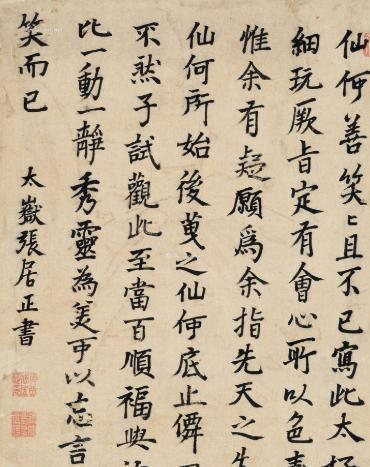 仙何善笑々且不已寫此太極
細玩厥旨定有會心所以色
惟余有疑願為余指先天之
仙何所始後蔓之仙何底止
不然子試觀此至當百順福與
比一動一靜秀靈為可以忘言
笑而已
太嶽張居正書